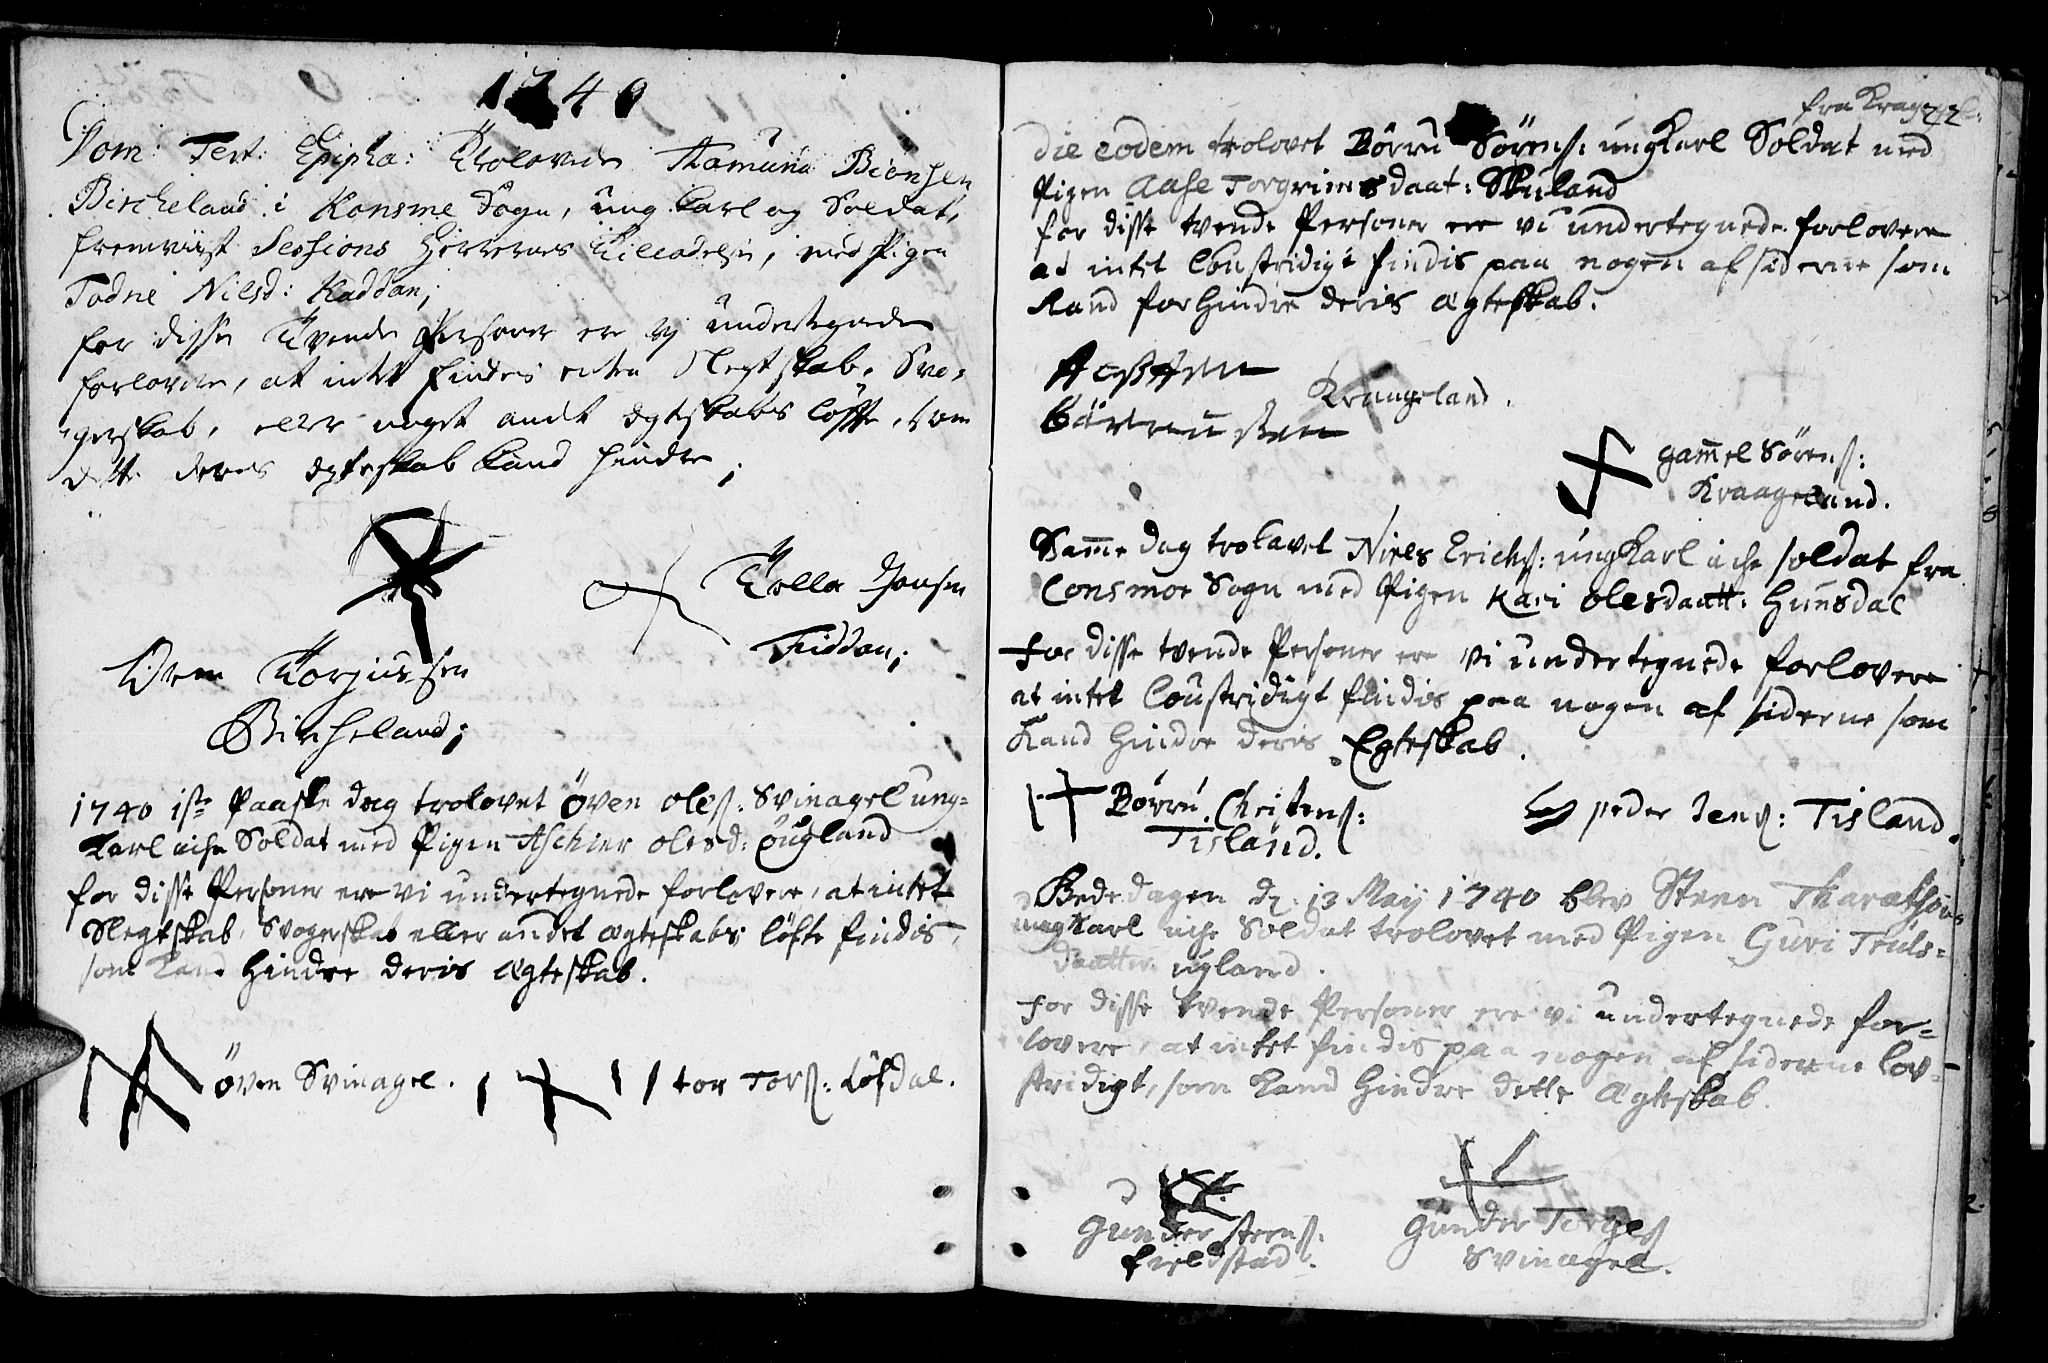 1740
Dom: Tert: Epipha: Trolovede Aamund Biönsen
Bircheland i Konsme Sogn, ung Karl og Soldat,
fremviist Sessions Herrernes Tilladelse, med Pigen
Todne Nilsd: Kaddan;
for disse Tvende Persover ere vj undertegnede
forlovere, at intet findes enten Slegtskab, Svo-
gerskab, eller noget andt ægteskabs löffte, som
dette deres ægteskab kand hindre;
Tolla Jonsen
Fiddan;
Oven Torjussen
Bircheland;
1740 1ste Paaske dag trolovet Öven Oles: Svinagel ung-
Karl iche Soldat med Pigen Aschier Olesd: Öugland
for disse Persone ere vi undertegnede forlovere, at intet
Slegtskab, Svogerskab eller andet ægteskabs löfte findis,
som kand hindre deris ægteskab.
Öven Svinagel.
tor Tors: Löfdal.
22
fra Kragel:
Die eodem trolovet Börru Sörens: ungKarl Soldat med
Pigen Aase Torgrimsdaat: Skuland
for disse tvende Persone ere vi undertegnede forlovere
at intet loustridigt findis paa nogen af siderne som
Kand forhindre deris ægteskab.
Kraageland.
gammel Sörens:
Kraageland.
Samme dag trolovet Niels Erichs: ungKarl iche soldat fra
Consmoe Sogn med Pigen Kari Olesdaatt: Hunsdal
for disse tvende Persone ere vi undertegnede forlovere
at intet loustridigt findis paa nogen af siderne som
Kand hindre deris Egteskab.
Börru Christens:
Tisland.
peder Jens: Tisland.
Bededagen d: 13 May 1740 blev Steen Tharalsön
ungKarl iche Soldat trolovet med Pigen Guri Truls-
daatter ugland.
For disse tvende Persone ere vi undertegnede for-
lovere, at intet findis paa nogen af siderne lov-
stridigt, som kand hindre dette Ægteskab.
Gunder steens:
fieldstad.
Gunder Torges:
Svinagel.